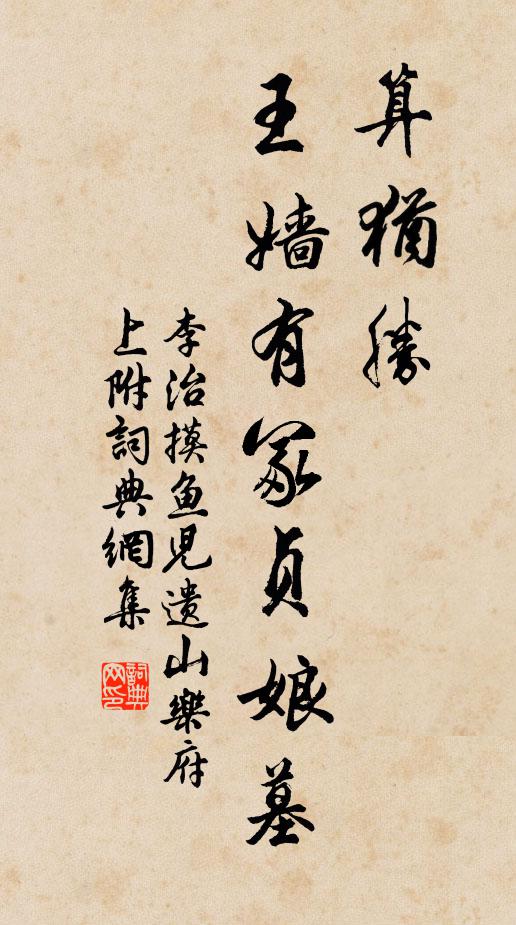 算猶勝
王嬙有冢貞娘墓
李治摸鱼兒遺山樂府
上附詞典網集
詞典网印